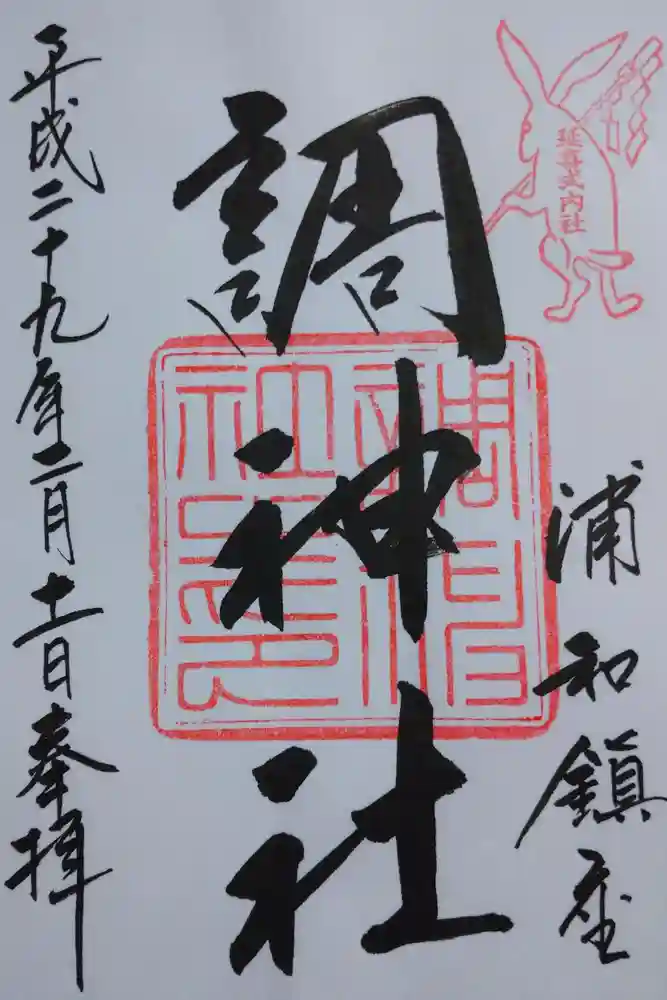 延喜式内社
浦和鎮座
調神社
調神社印
平成二十九年二月十一日奉拝